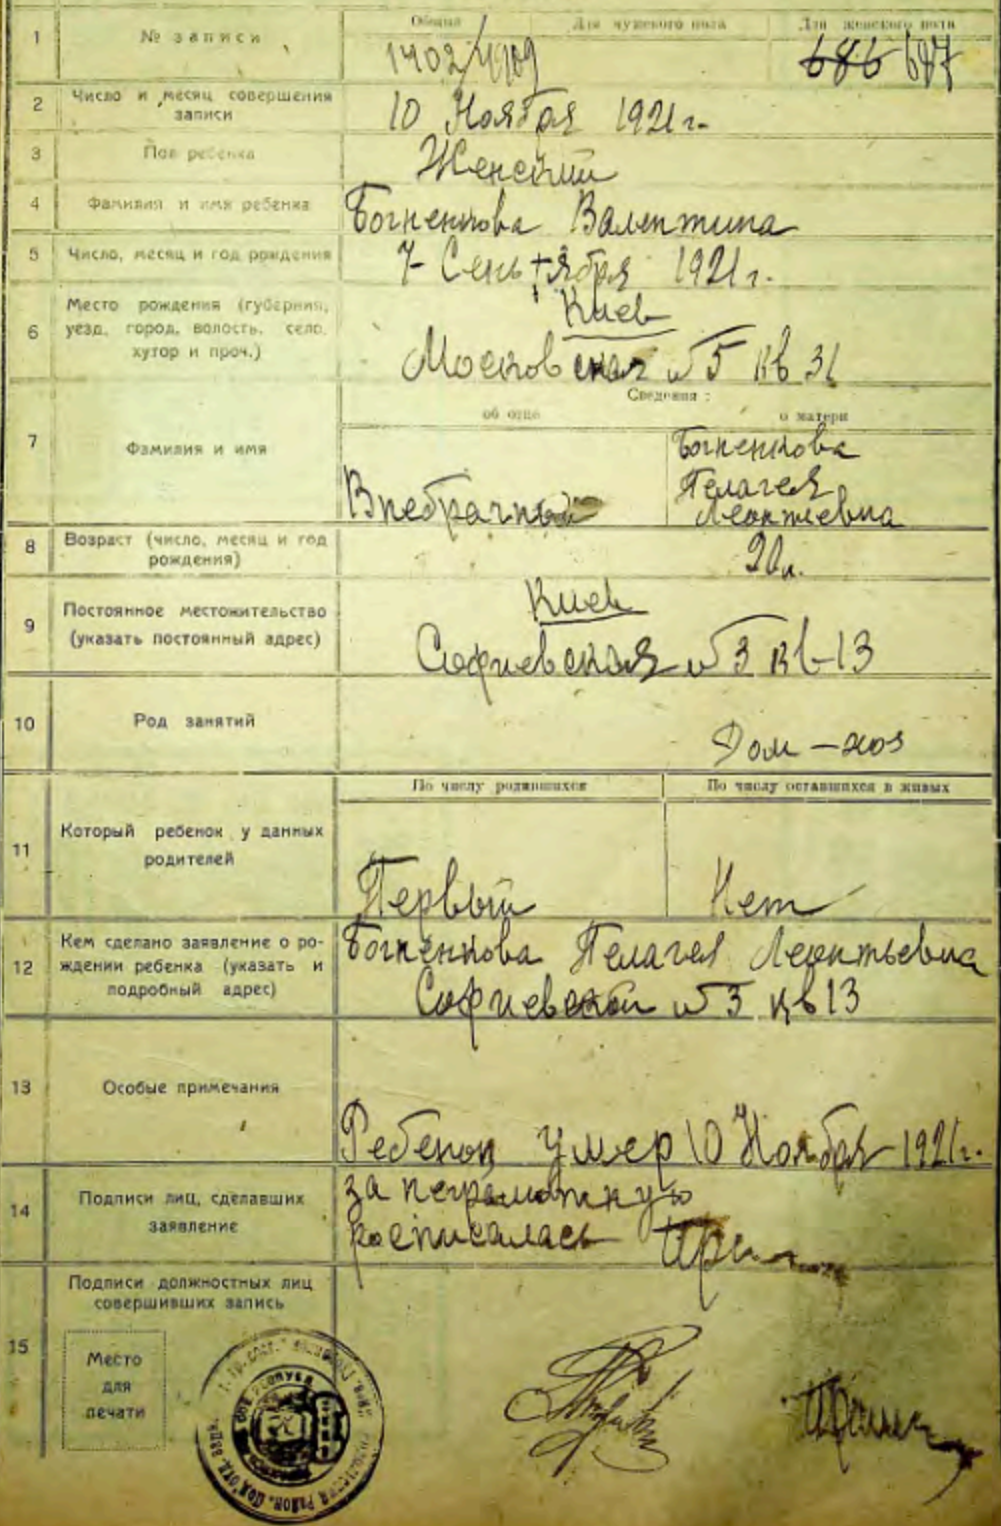 1
№ записи
Общий
Для мужеского пола
Для женского пола
1402/4109
686 687
2
Число и месяц совершения
записи
10 Ноября 1921 г.
3
Пол ребенка
Женский
4
Фамилия и имя ребенка
Богненкова Валентина
5
Число, месяц и год рождения
7 Сентября 1921 г.
6
Место рождения (губерния,
уезд, город, волость, село,
хутор и проч.)
Киев
Московская № 5 кв 31
Сведения :
об отце
о матери
7
Фамилия и имя
Внебрачный
Богненкова
Пелагея
Леонтьевна
8
Возраст (число, месяц и год
рождения)
20 л.
9
Постоянное местожительство
(указать постоянный адрес)
Киев
Софиевская № 3 кв-13
10
Род занятий
Дом-хоз
По числу родившихся
По числу оставшихся в живых
11
Который ребенок у данных
родителей
Первый
Нет
12
Кем сделано заявление о ро-
ждении ребенка (указать и
подробный адрес)
Богненкова Пелагея Леонтьевна
Софиевской № 3 кв 13
13
Особые примечания
Ребенок умер 10 Ноября 1921 г.
14
Подписи лиц, сделавших
заявление
за неграмотную
росписалась
15
Подписи должностных лиц
совершивших запись
Место
для
печати